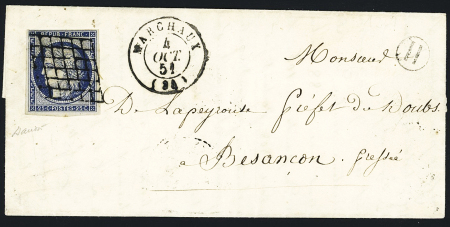 REPUB. FRANC.
25 C. POSTES 25 C.
MARCHAUX
4
OCT.
51
(94)
H
Monsieur
De Lapeyrouse Préfet du Doubs
a Besançon. Pressée